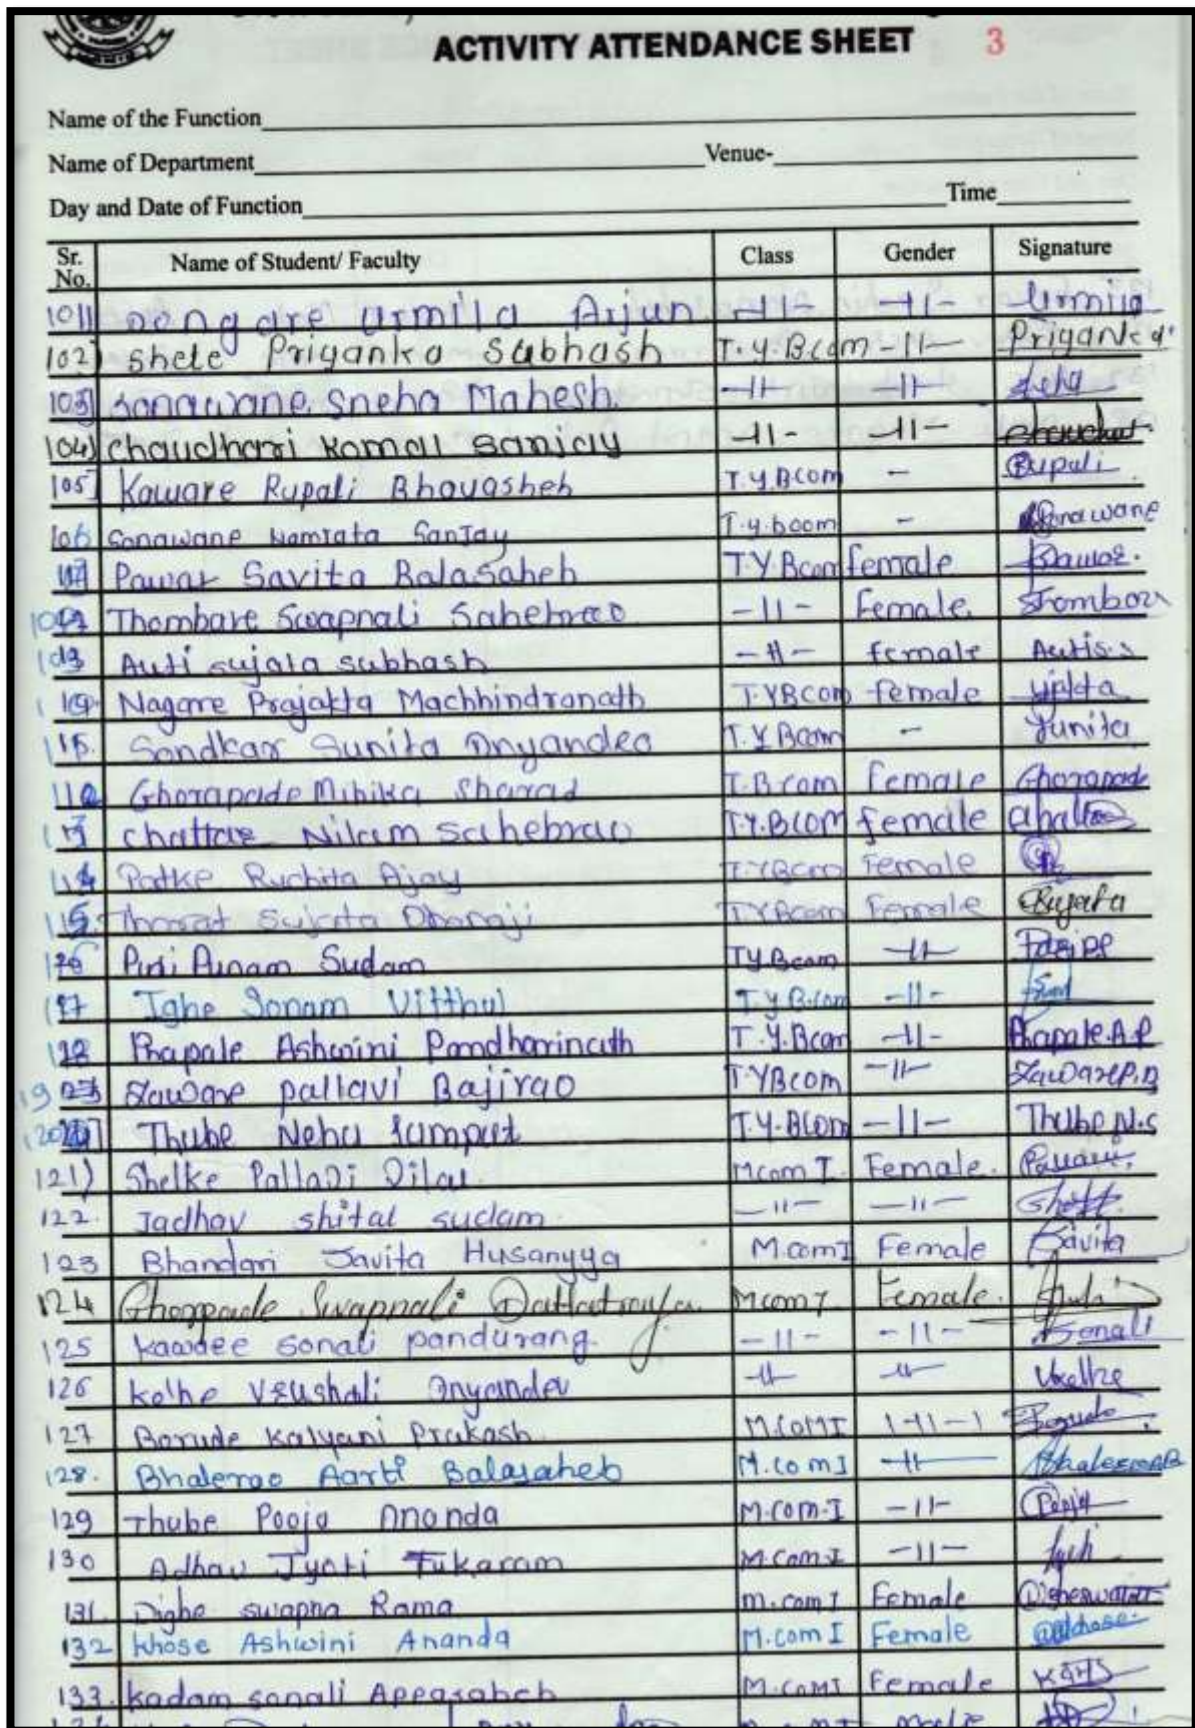 ACTIVITY ATTENDANCE SHEET 3
Name of the Function
Name of Department Venue-
Day and Date of Function Time
Sr. No. Name of Student/ Faculty Class Gender Signature
101) Dongare Urmila Arjun -11- -11- Urmila
102) Shete Priyanka Subhash T.Y.Bcom -11- Priyanka
103) Sonawane Sneha Mahesh. -11- -11-
104) Chaudhari Komal Sanjay -11- -11-
105) Kaware Rupali Bhausaheb T.Y.BCom - Rupali
106 Sonawane Namrata Sanjay T.Y.bcom - Sonawane
Pawar Savita Balasaheb T.Y.Bcom female Pawar.
Thombare Swapnali Sahebrao -11- Female.
Auti sujata subhash -11- female Autis.s
110 Nagare Prajakta Machhindranath T.YBcom female
Sondkar Sunita Dnyandeo T.Y Bcom - Sunita
112 Ghorapade Mihika Sharad T.Bcom female Ghorapade
Chattar Nilam Sahebrao T.Y.BCOM female
114 Patke Ruchita Ajay T.YBcom Female
115 Thorat Sujata Dhanaji T.YBcom Female Sujata
Puri Punam Sudam TY.Bcom -11-
117 Ighe Sonam Vitthul T.Y.B.com -11-
118 Phapale Ashwini Pandharinath T.Y.Bcom -11- Phapale.A.P
19 Zaware pallavi Bajirao T.YBcom -11- ZawareP.B
120 Thube Neha Sampat T.Y.BCom -11- Thube N.S
121) Shelke Pallavi Dilip Mcom I. Female.
122. Jadhav shital sudam -11- -11-
123 Bhandari Savita Husanyya M.comI Female Savita
124 Ghorpade Swapnali Dattatraya. Mcom I. Female.
125 Kawdee Sonali pandurang. -11- -11- Sonali
126 Kolhe Vrushali Dnyandev -11- -11- Vkolhe
127 Borude Kalyani Prakash. M.COMI -11- Borude
128. Bhalerao Aarti Balasaheb M.ComI -11-
129 Thube Pooja Ananda M.com-I -11- Pooja
130 Adhav Jyoti Tukaram M.Com-I -11-
131. Dighe swapna Rama m.com I Female
132 Khose Ashwini Ananda M.com I Female
133. Kadam sonali Appasaheb M.COMI Female